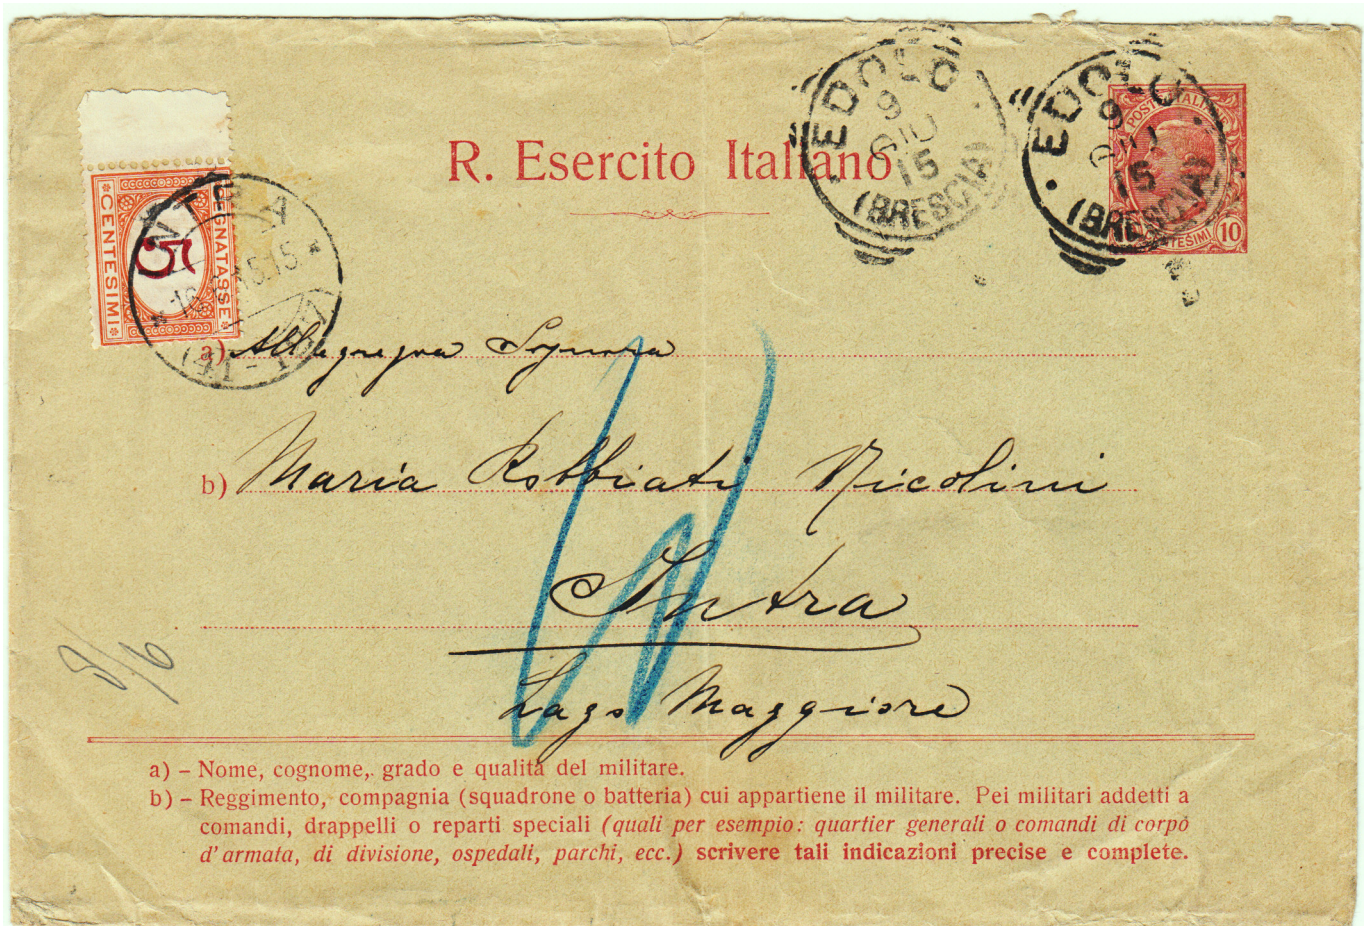 R. Esercito Italiano
EDOLO
9
GIU
15
(BRESCIA)
EDOLO
9
GIU
15
(BRESCIA)
POSTE ITALIANE
CENTESIMI 10
SEGNATASSE
5
CENTESIMI
INTRA
15.15
a) Signora
b) Maria Robbiati Nicolini
Intra
Lago Maggiore
9/6
a) – Nome, cognome, grado e qualità del militare.
b) – Reggimento, compagnia (squadrone o batteria) cui appartiene il militare. Pei militari addetti a
comandi, drappelli o reparti speciali (quali per esempio: quartier generali o comandi di corpo
d'armata, di divisione, ospedali, parchi, ecc.) scrivere tali indicazioni precise e complete.